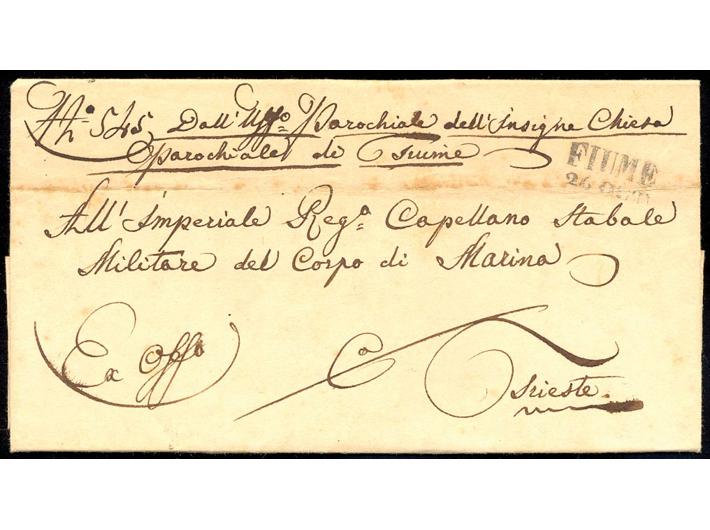 N.º 545 Dall'Uffº Parochiale dell'Insigne Chiesa
Parochiale di Fiume
FIUME
26
All' Imperiale Regª Capellano Stabale
Militare del Corpo di Marina
Ex Offo
a
Trieste.